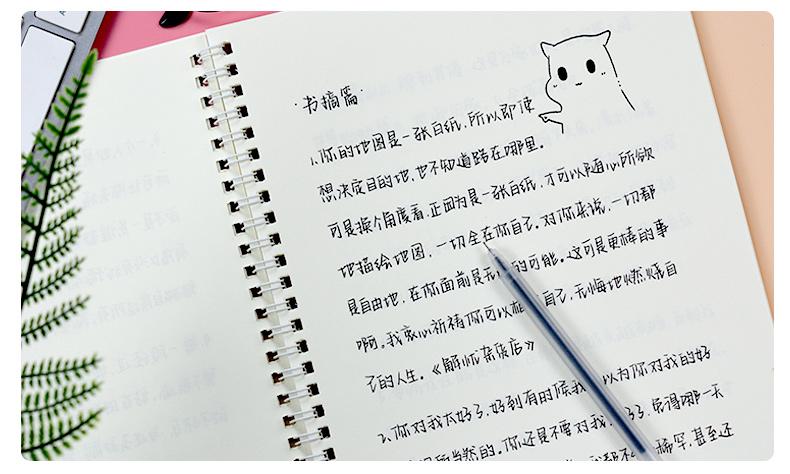 ·书摘篇·
1、你的地图是一张白纸,所以即使
想决定目的地,也不知道路在哪里。
可是换个角度看,正因为是一张白纸,才可以随心所欲
地描绘地图,一切全在你自己。对你来说,一切都
是自由地,在你面前是无 的可能。这可是更棒的事
啊。我衷心祈祷你可以相 自己,无悔地燃烧自
己的人生。《解忧杂货店》
2、你对我太好了,好到有时候我 以为你对我的好
所当然的。你还是不要对我 了,免得哪一天
我都不 稀罕,甚至还